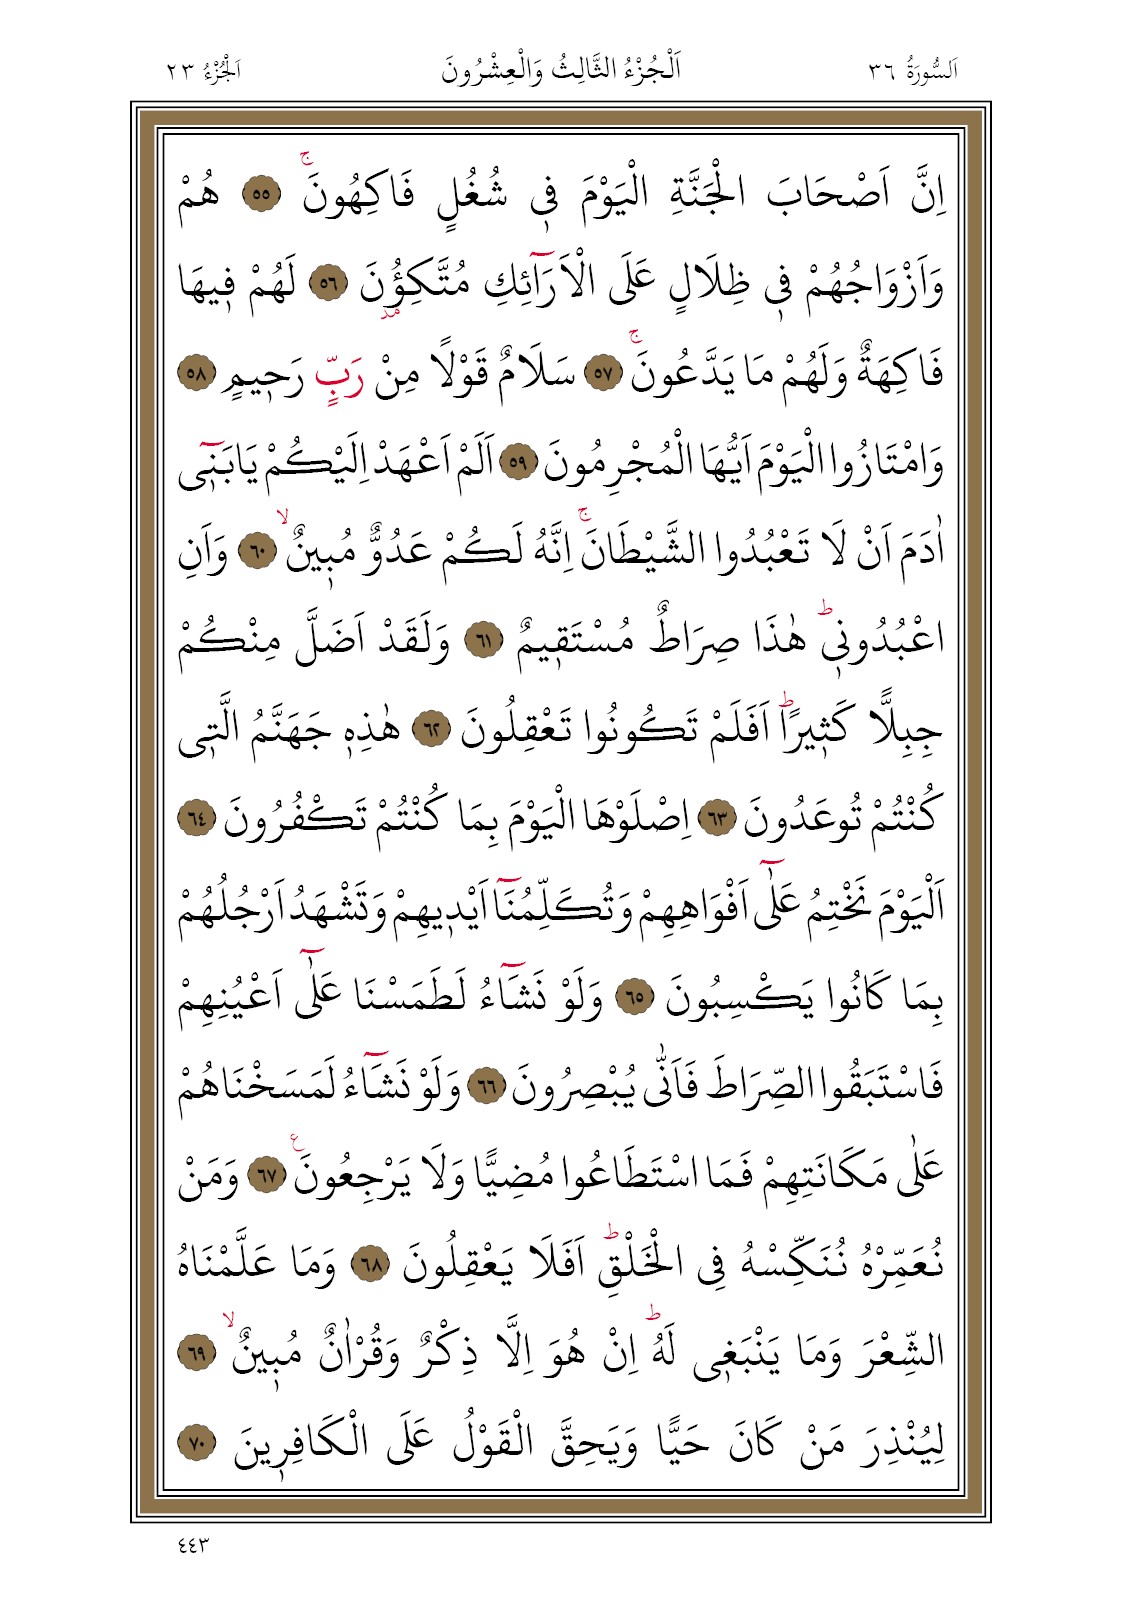 اَلسُّورَةُ ٣٦ اَلْجُزْءُ الثَّالِثُ وَالْعِشْرُونَ اَلْجُزْءُ ٢٣
اِنَّ اَصْحَابَ الْجَنَّةِ الْيَوْمَ ف۪ي شُغُلٍ فَاكِهُونَۚ ﴿٥٥﴾ هُمْ
وَاَزْوَاجُهُمْ ف۪ي ظِلَالٍ عَلَى الْاَرَٓائِكِ مُتَّكِؤُ۫نَ ﴿٥٦﴾ لَهُمْ ف۪يهَا
فَاكِهَةٌ وَلَهُمْ مَا يَدَّعُونَۚ ﴿٥٧﴾ سَلَامٌ قَوْلًا مِنْ رَبٍّ رَح۪يمٍ ﴿٥٨﴾
وَامْتَازُوا الْيَوْمَ اَيُّهَا الْمُجْرِمُونَ ﴿٥٩﴾ اَلَمْ اَعْهَدْ اِلَيْكُمْ يَابَن۪ٓي
اٰدَمَ اَنْ لَا تَعْبُدُوا الشَّيْطَانَۚ اِنَّهُ لَكُمْ عَدُوٌّ مُب۪ينٌۙ ﴿٦٠﴾ وَاَنِ
اعْبُدُون۪يۜ هٰذَا صِرَاطٌ مُسْتَق۪يمٌ ﴿٦١﴾ وَلَقَدْ اَضَلَّ مِنْكُمْ
جِبِلًّا كَث۪يرًاۜ اَفَلَمْ تَكُونُوا تَعْقِلُونَ ﴿٦٢﴾ هٰذِه۪ جَهَنَّمُ الَّت۪ي
كُنْتُمْ تُوعَدُونَ ﴿٦٣﴾ اِصْلَوْهَا الْيَوْمَ بِمَا كُنْتُمْ تَكْفُرُونَ ﴿٦٤﴾
اَلْيَوْمَ نَخْتِمُ عَلٰٓى اَفْوَاهِهِمْ وَتُكَلِّمُنَٓا اَيْد۪يهِمْ وَتَشْهَدُ اَرْجُلُهُمْ
بِمَا كَانُوا يَكْسِبُونَ ﴿٦٥﴾ وَلَوْ نَشَٓاءُ لَطَمَسْنَا عَلٰٓى اَعْيُنِهِمْ
فَاسْتَبَقُوا الصِّرَاطَ فَاَنّٰى يُبْصِرُونَ ﴿٦٦﴾ وَلَوْ نَشَٓاءُ لَمَسَخْنَاهُمْ
عَلٰى مَكَانَتِهِمْ فَمَا اسْتَطَاعُوا مُضِيًّا وَلَا يَرْجِعُونَ۟ ﴿٦٧﴾ وَمَنْ
نُعَمِّرْهُ نُنَكِّسْهُ فِي الْخَلْقِۜ اَفَلَا يَعْقِلُونَ ﴿٦٨﴾ وَمَا عَلَّمْنَاهُ
الشِّعْرَ وَمَا يَنْبَغ۪ي لَهُۜ اِنْ هُوَ اِلَّا ذِكْرٌ وَقُرْاٰنٌ مُب۪ينٌۙ ﴿٦٩﴾
لِيُنْذِرَ مَنْ كَانَ حَيًّا وَيَحِقَّ الْقَوْلُ عَلَى الْكَافِر۪ينَ ﴿٧٠﴾
٤٤٣